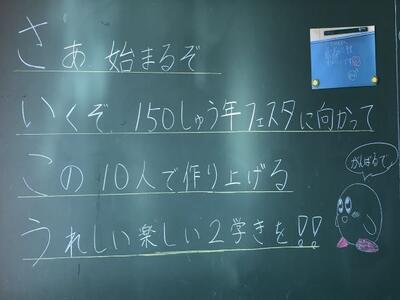 さあ 始まるぞ
いくぞ 150しゅう年フェスタに向かって
この10人で作り上げる
うれしい楽しい2学きを!!
がんばるで